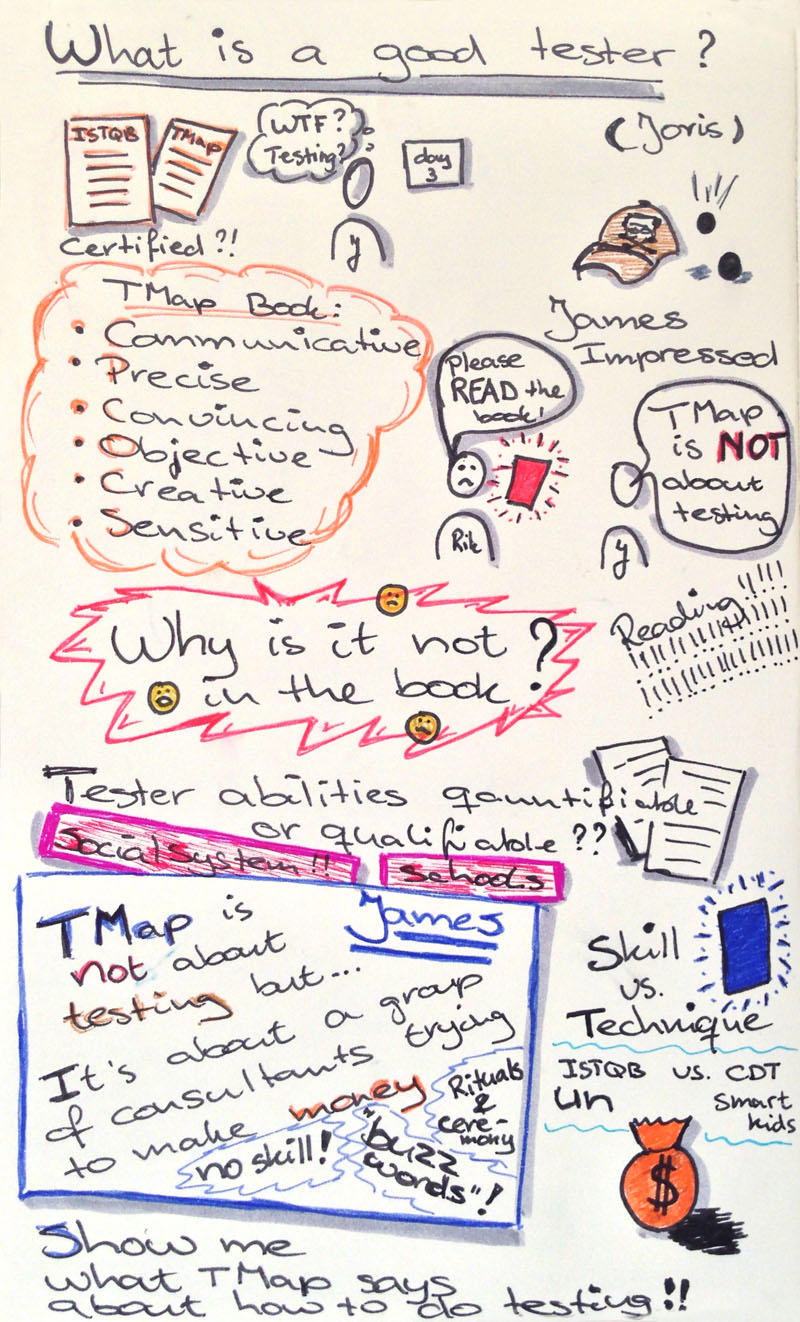 What is a good tester?
ISTQB
TMap
WTF?
Testing?
day
3
(Joris)
y
Certified?!
TMap Book:
• Communicative
• Precise
• Convincing
• Objective
• Creative
• Sensitive
James
Impressed
please
READ the
book!
Rik
TMap
is NOT
about
testing
y
Why is it not
in the book?
Reading!!!!!
Tester abilities qauntifiable
or qualifiable ??
Social system!!
Schools
TMap is
not about
testing but...
James
It's about a group
of consultants trying
to make money
Rituals
&
cere-
mony
no skill!
"buzz
words"!
Skill
vs.
Technique
ISTQB vs. CDT
un smart
kids
$
Show me
what TMap says
about how to do testing!!